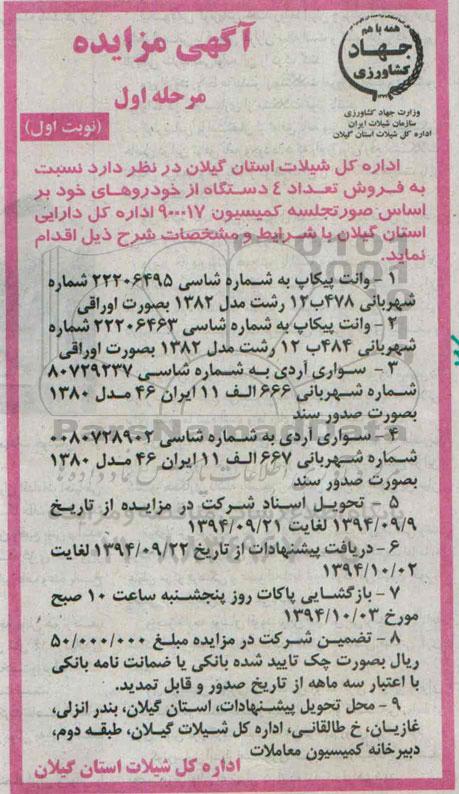 همه با هم
جهاد
کشاورزی
وزارت جهاد کشاورزی
سازمان شیلات ایران
اداره کل شیلات استان گیلان
آگهی مزایده
مرحله اول
(نوبت اول)
اداره کل شیلات استان گیلان در نظر دارد نسبت
به فروش تعداد ٤ دستگاه از خودروهای خود بر
اساس صورتجلسه کمیسیون ۹۰۰۰۱۷ اداره کل دارایی
استان گیلان با شرایط و مشخصات شرح ذیل اقدام
نماید.
۱ - وانت پیکاپ به شماره شاسی ۲۲۲۰۶۴۹۵ شماره
شهربانی ۴۷۸ب۱۲ رشت مدل ۱۳۸۲ بصورت اوراقی
۲ - وانت پیکاپ به شماره شاسی ۲۲۲۰۶۴۶۳ شماره
شهربانی ۴۸۴ب ۱۲ رشت مدل ۱۳۸۲ بصورت اوراقی
۳ - سواری آردی به شماره شاسی ۸۰۷۲۹۲۳۷
شماره شهربانی ۶۶۶ الف ۱۱ ایران ۴۶ مدل ۱۳۸۰
بصورت صدور سند
۴ - سواری آردی به شماره شاسی ۰۰۸۰۷۲۸۹۰۲
شماره شهربانی ۶۶۷ الف ۱۱ ایران ۴۶ مدل ۱۳۸۰
بصورت صدور سند
۵ - تحویل اسناد شرکت در مزایده از تاریخ
۱۳۹۴/۰۹/۹ لغایت ۱۳۹۴/۰۹/۲۱
۶ - دریافت پیشنهادات از تاریخ ۱۳۹۴/۰۹/۲۲ لغایت
۱۳۹۴/۱۰/۰۲
۷ - بازگشایی پاکات روز پنجشنبه ساعت ۱۰ صبح
مورخ ۱۳۹۴/۱۰/۰۳
۸ - تضمین شرکت در مزایده مبلغ ۵۰/۰۰۰/۰۰۰
ریال بصورت چک تایید شده بانکی یا ضمانت نامه بانکی
با اعتبار سه ماهه از تاریخ صدور و قابل تمدید.
۹ - محل تحویل پیشنهادات، استان گیلان، بندر انزلی،
غازیان، خ طالقانی، اداره کل شیلات گیلان، طبقه دوم،
دبیرخانه کمیسیون معاملات
اداره کل شیلات استان گیلان
ParsNamadData